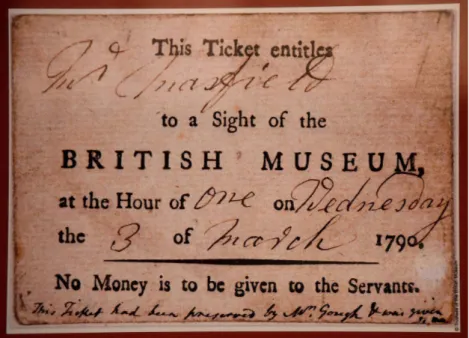 This Ticket entitles
Mr. Masfield
to a Sight of the
BRITISH MUSEUM,
at the Hour of One on Wednesday
the 3 of March 1790.
No Money is to be given to the Servants.
This Ticket had been preserved by Mr. Gough & was given